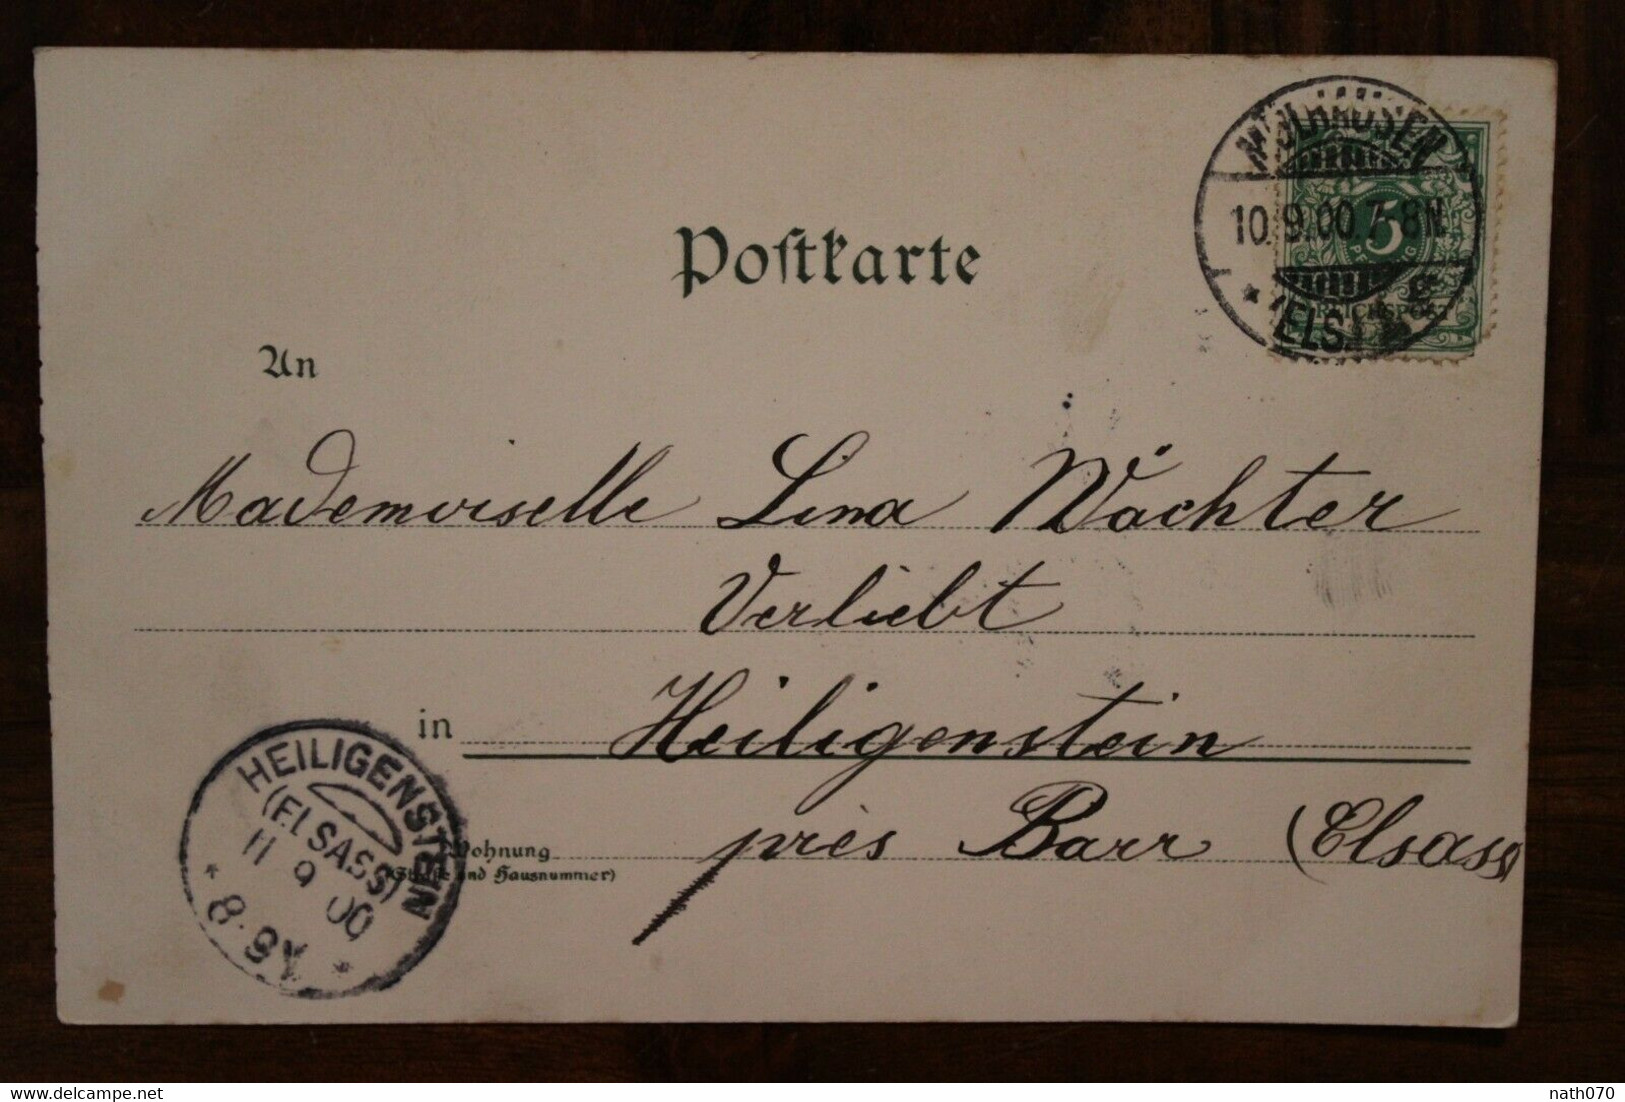 Postkarte
MÜLHAUSEN
10.9.00.7-8N.
* (ELS.) g
5
PFENNIG
REICHSPOST
An
Mademoiselle Lina Wächter
Verliebt
in Heiligenstein
près Barr (Elsass)
Wohnung
(Straße und Hausnummer)
HEILIGENSTEIN
(ELSASS)
11 9 00
* 8-9V *
delcampe.net
nath070